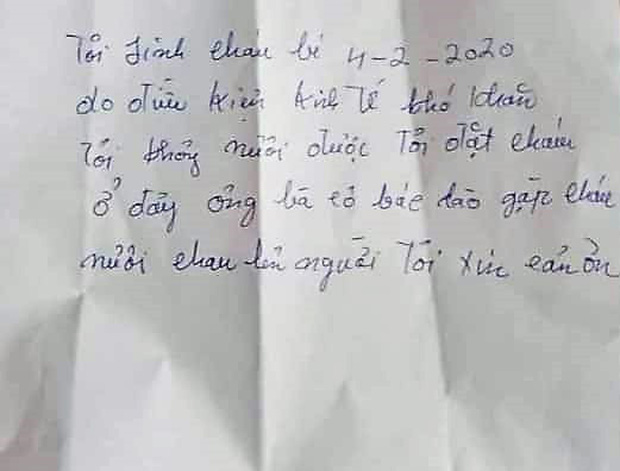 Tôi sinh cháu bé 4-2-2020
do điều kiện kinh tế khó khăn
Tôi không nuôi được Tôi đặt cháu
ở đây ông bà cô bác nào gặp cháu
nuôi cháu lên người Tôi xin cảm ơn